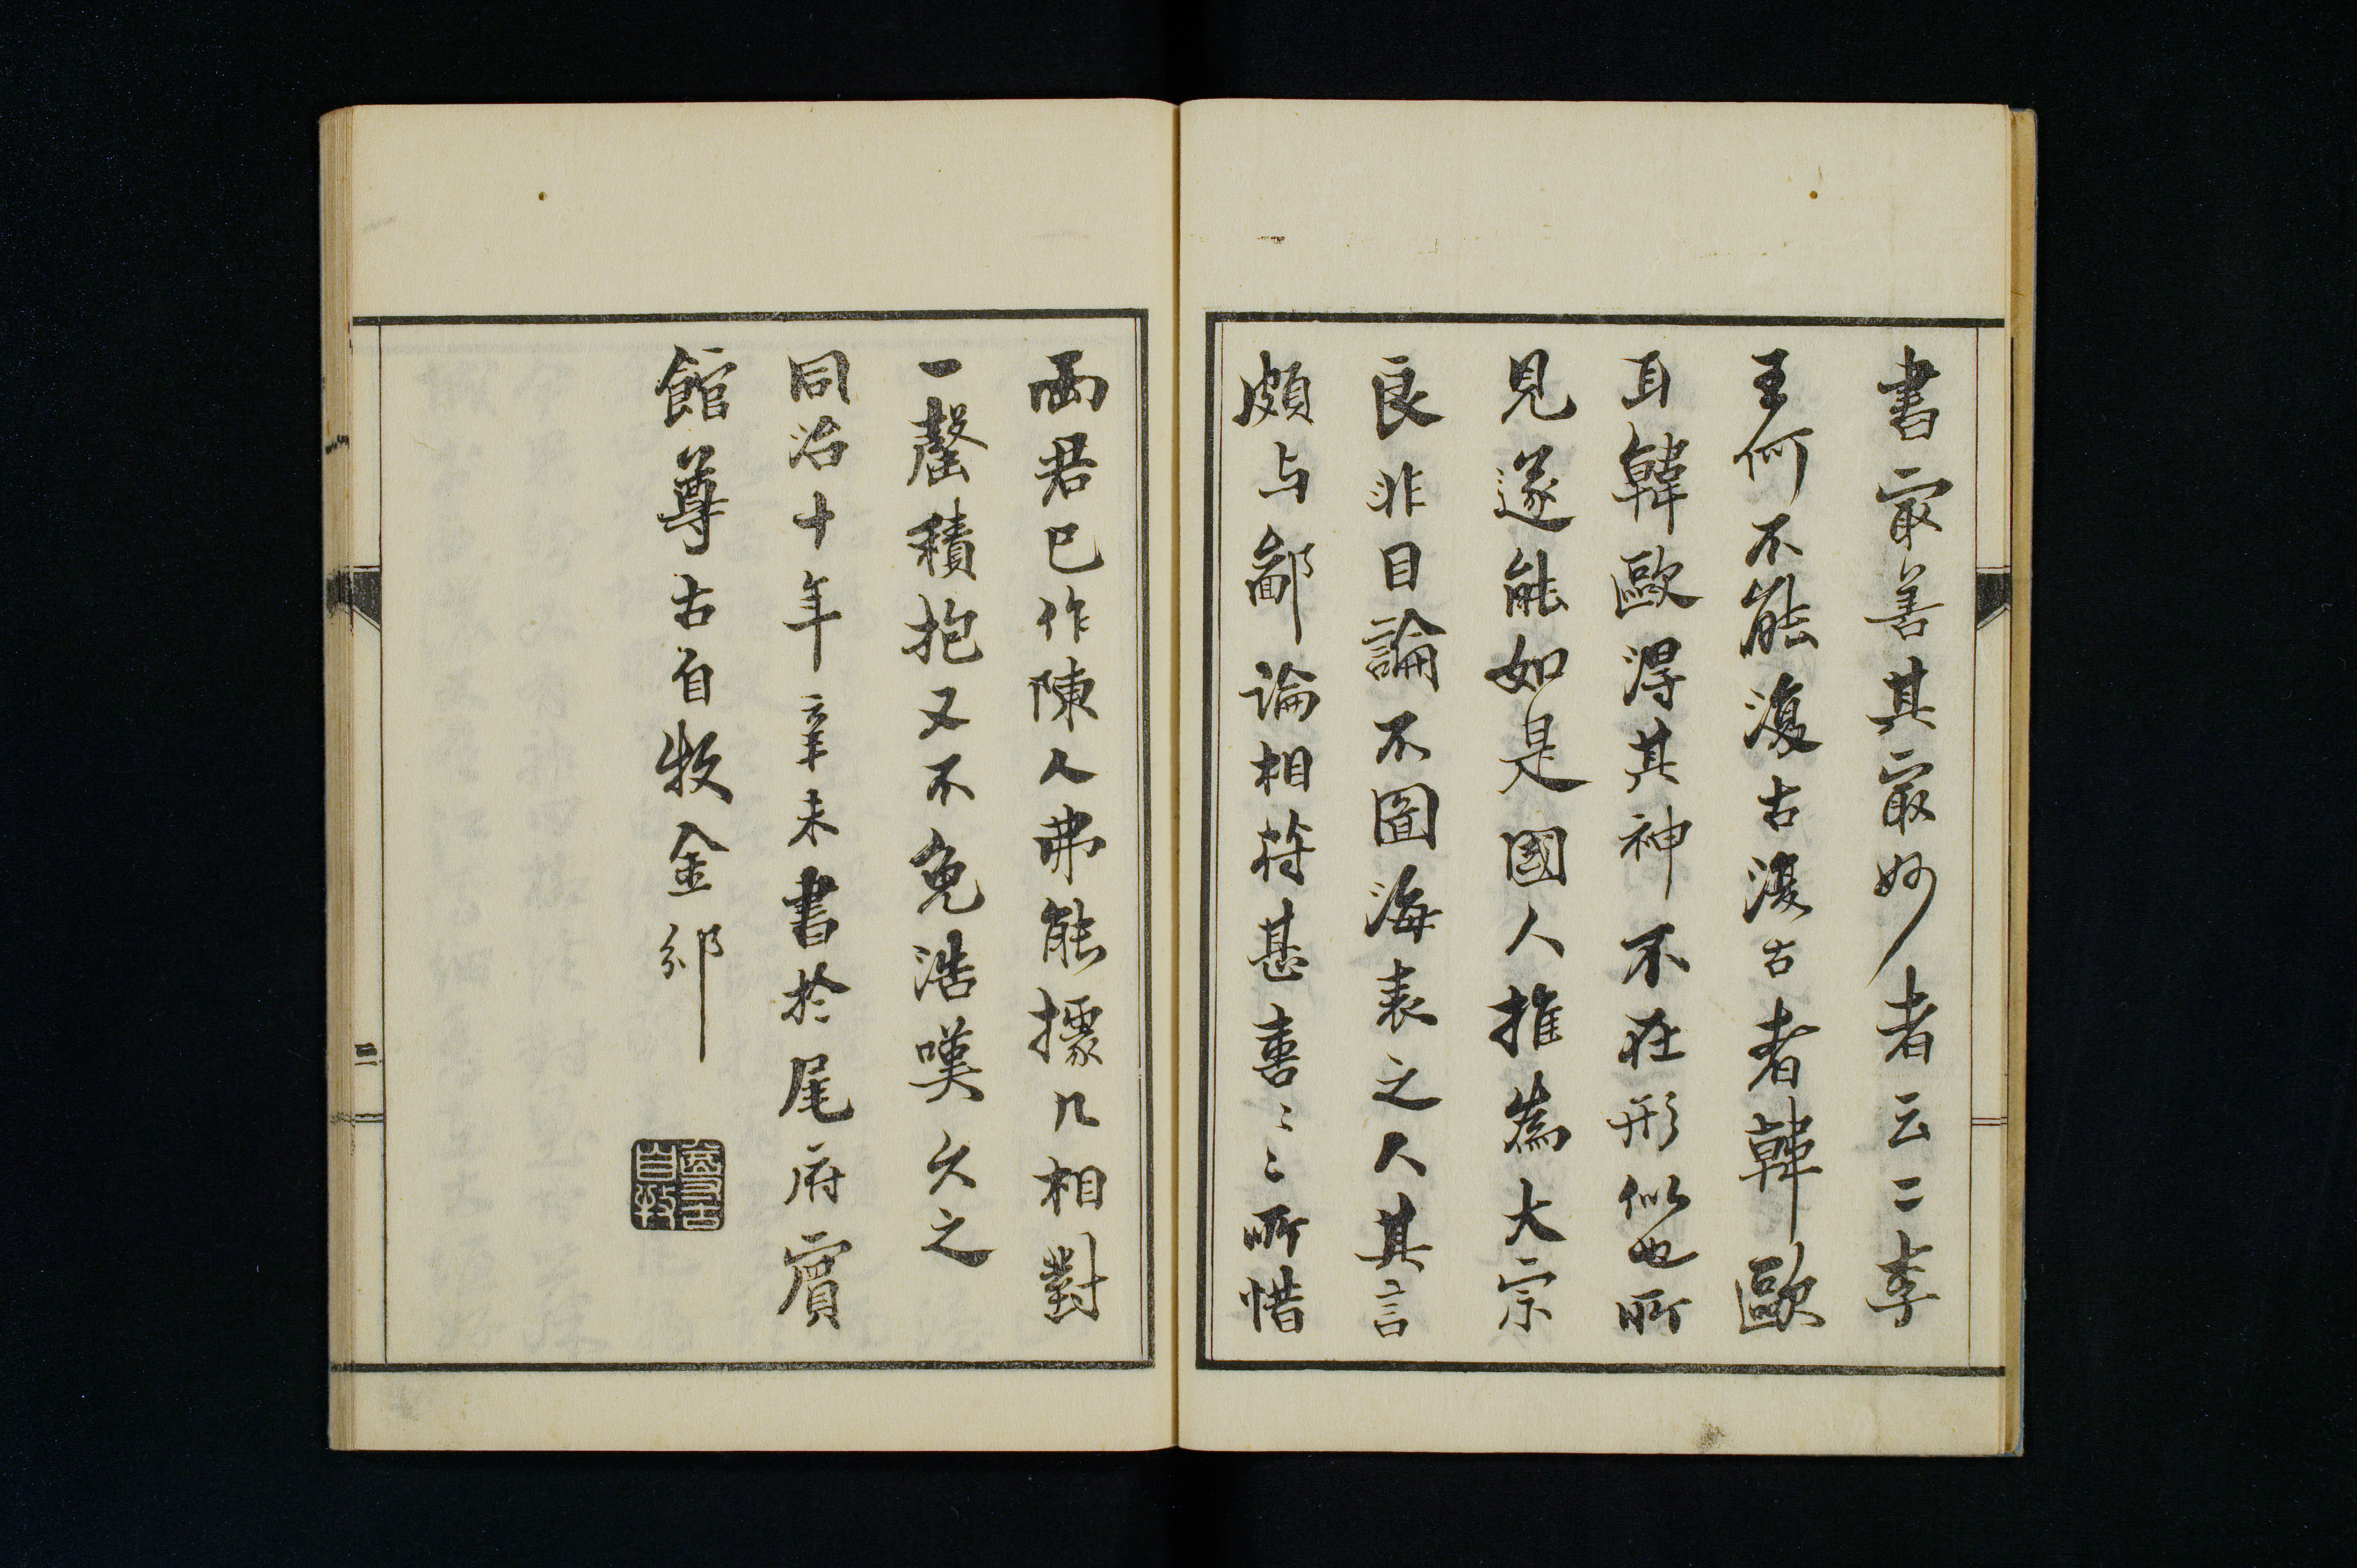 書最善其最妙者云二李
王何不能復古復古者韓歐
耳韓歐得其神不在形似也所
見遂能如是國人推為大宗
良非目論不圖海表之人其言
頗与鄙論相符甚喜〻〻所惜
兩君已作陳人弗能據几相對
一罄積抱又不免浩嘆久之
同治十年辛未書於尾府賓
館尊古自牧金邠
尊古
自牧
二